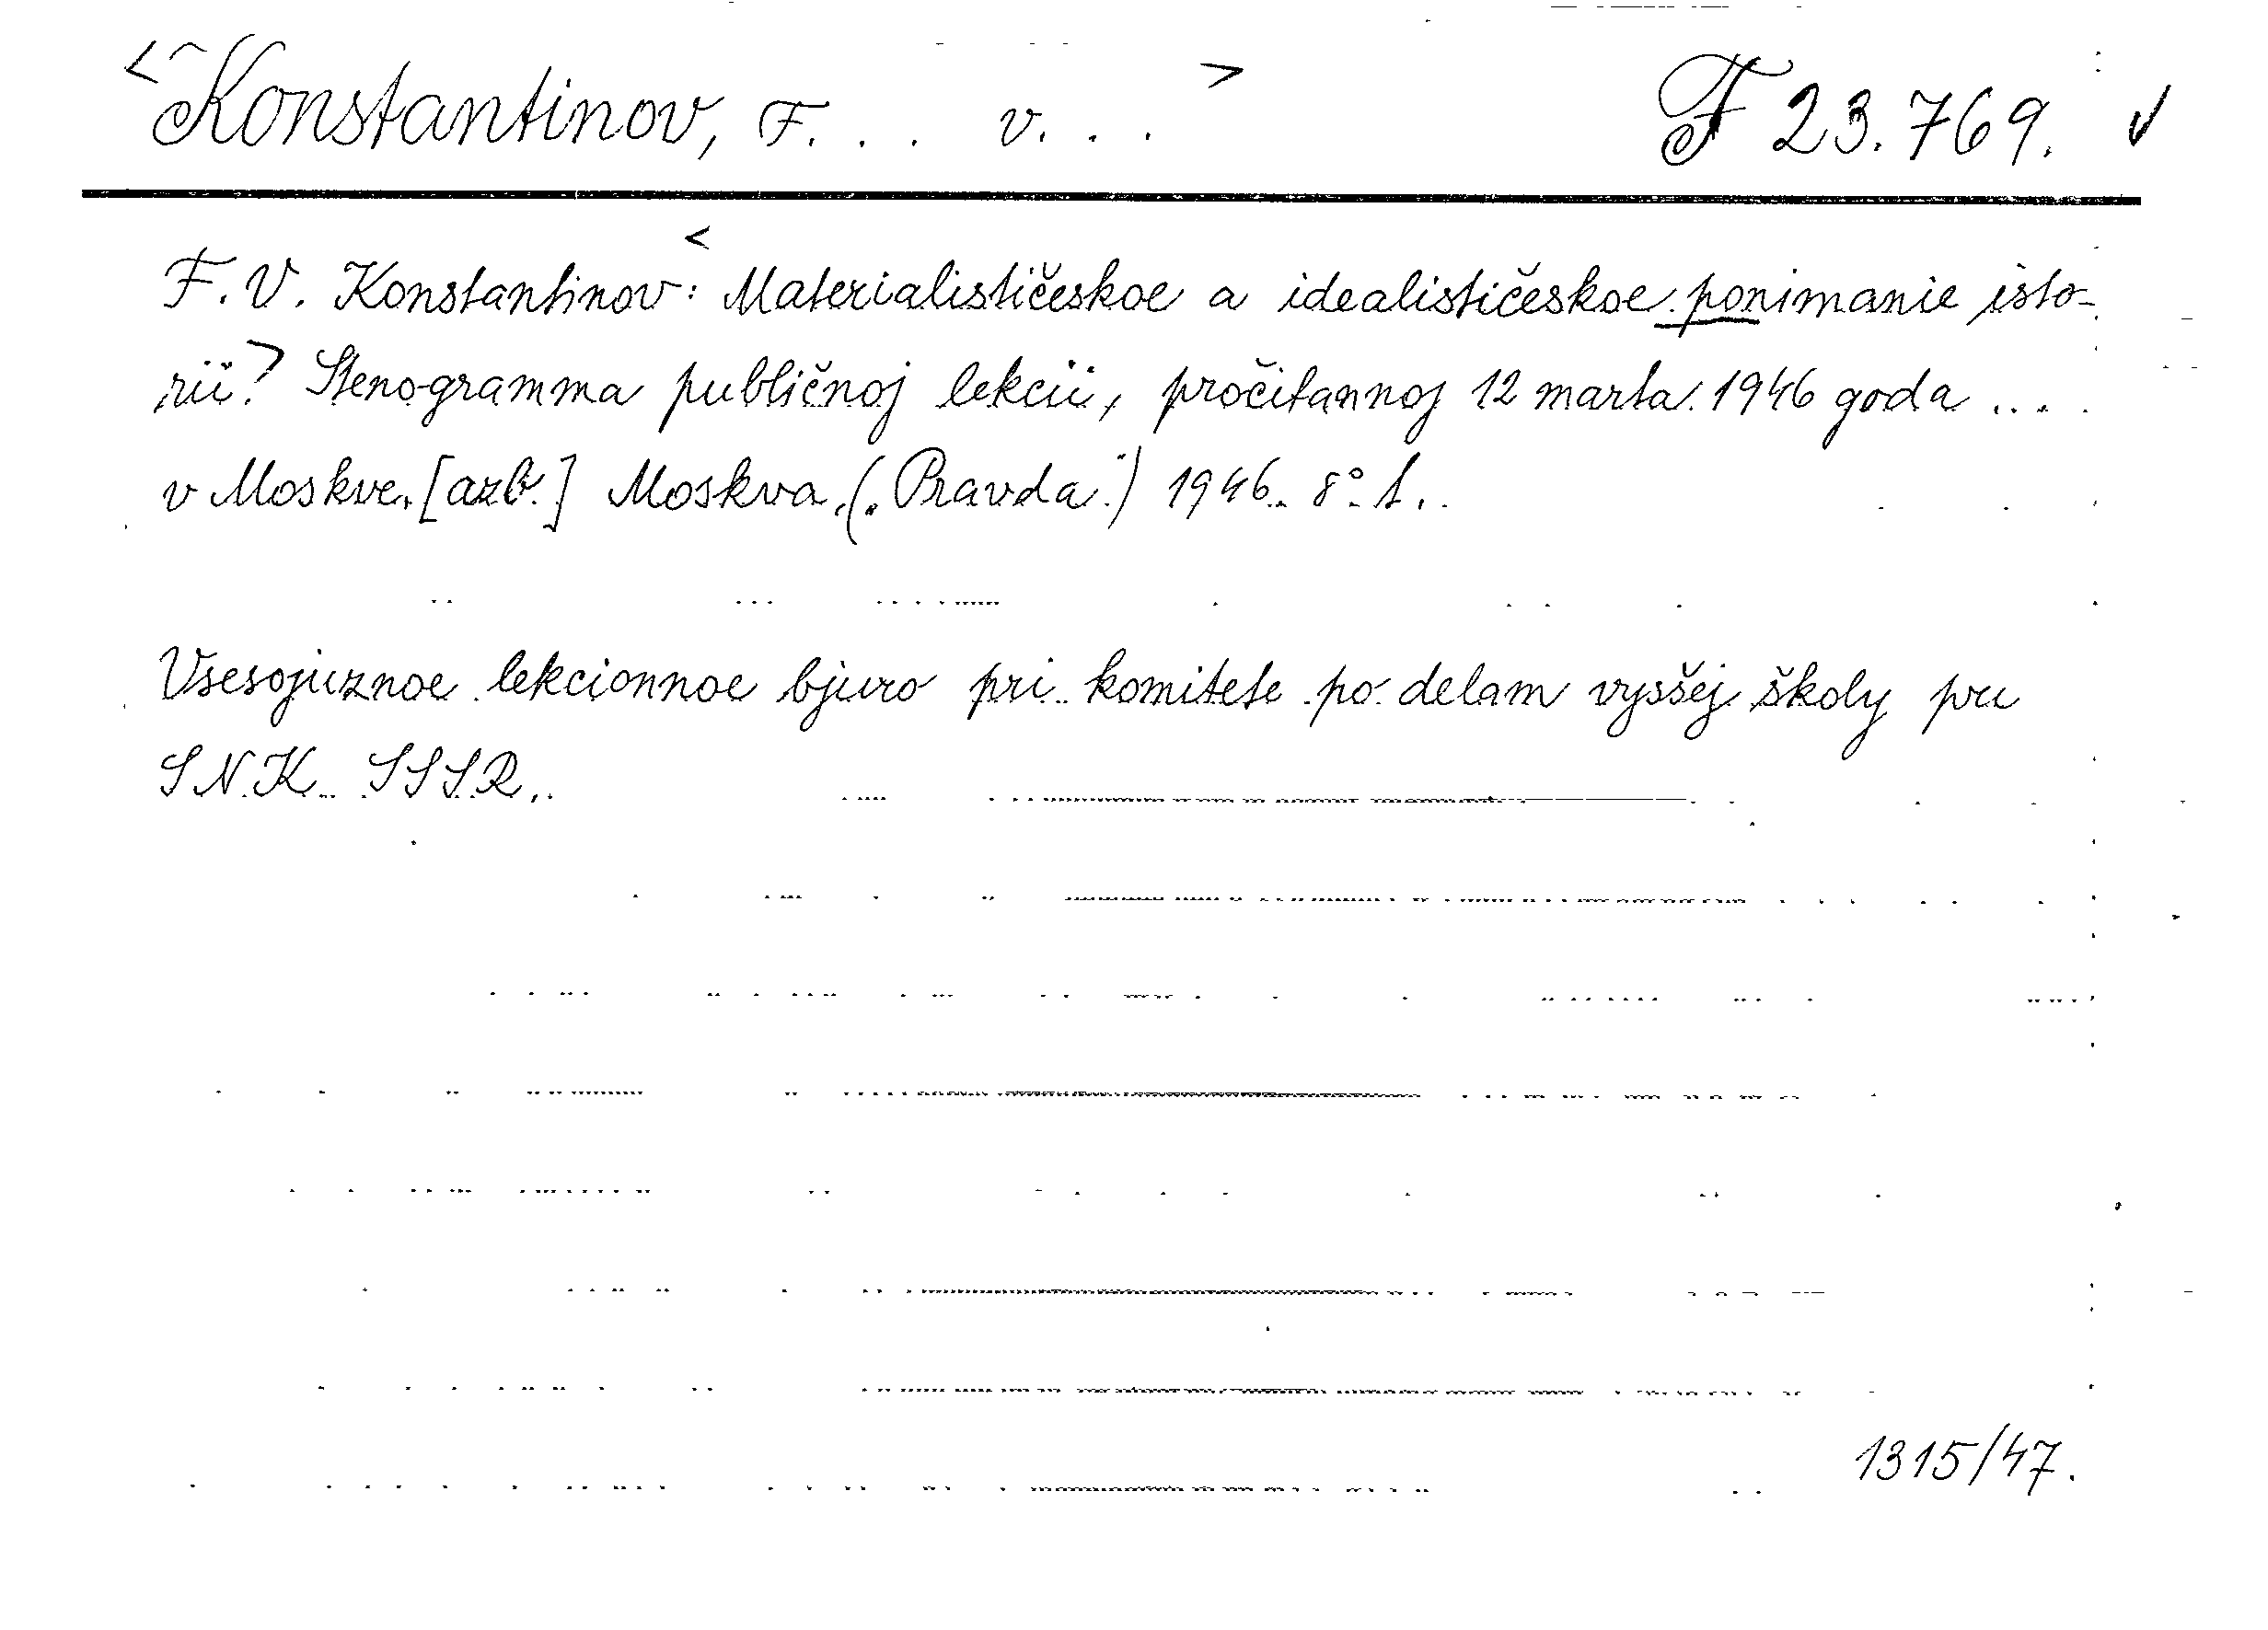 <Konstantinov, F. . . v. . . > F 23.769. √
F. V. Konstantinov: <Materialističeskoe a idealističeskoe ponimanie isto-
rii> Stenogramma publičnoj lekcii, pročitannoj 12 marta 1946 goda ...
v Moskve. [azb.] Moskva, („Pravda") 1946. 8° 1.
Vsesojuznoe lekcionnoe bjuro pri komitete po delam vysšej školy pri
S.N.K. SSSR.
1315/47.